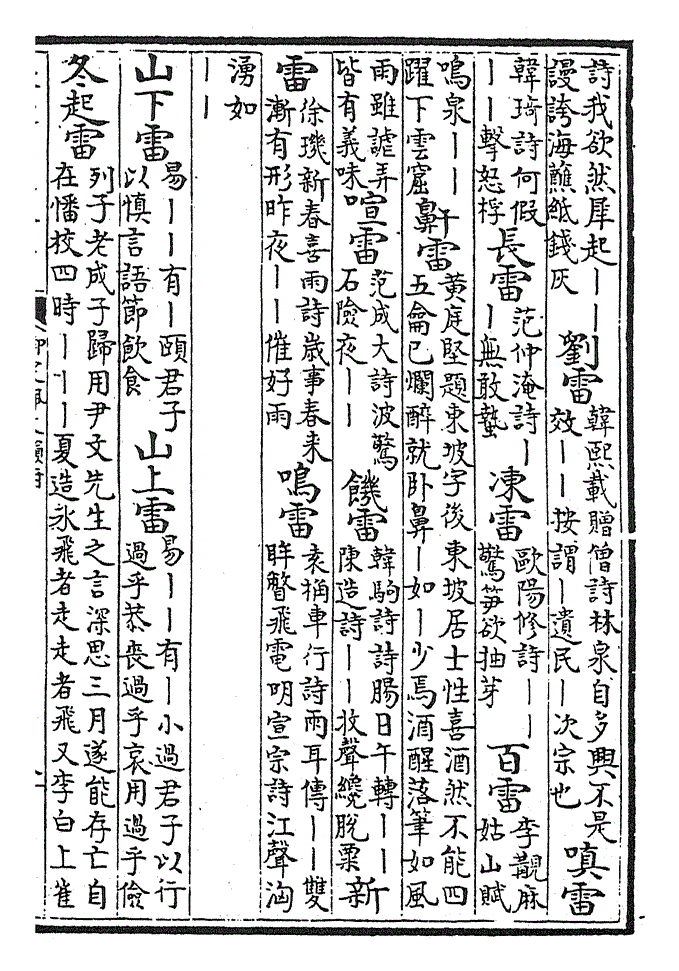 詩我欲然犀起丨丨謾誇海蘸紙錢灰 劉雷 韓熙載贈僧詩林泉自多興不是效丨丨按謂丨遺民丨次宗也 嗔雷
韓琦詩何假丨丨擊怒桴 長雷 范仲淹詩丨丨無敢蟄 凍雷 歐陽修詩丨丨驚筍欲抽芽 百雷 李觀麻姑山賦
鳴泉丨丨躍下雲窟 鼾雷 黃庭堅題東坡字後東坡居士性喜酒然不能四五龠已爛醉就卧鼻丨如丨少焉酒醒落筆如風
雨雖謔弄皆有義味 喧雷 范成大詩波驚石險夜丨丨 饑雷 韓駒詩詩腸日午轉丨丨陳造詩丨丨收聲纔脫粟 新
雷 徐璣新春喜雨詩歲事春来漸有形昨夜丨丨催好雨 鳴雷 袁桷車行詩雨耳傳丨丨雙眸瞥飛電明宣宗詩江聲洶
湧如丨丨
山下雷 易丨丨有丨頤君子以慎言語節飲食 山上雷 易丨丨有丨小過君子以行過乎恭喪過乎哀用過乎儉
冬起雷 列子老成子歸用尹文先生之言深思三月遂能存亡自在憣校四時丨丨丨夏造氷飛者走走者飛又李白上崔